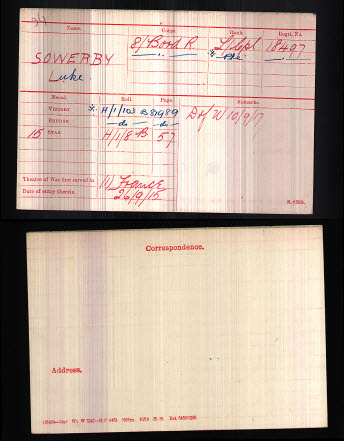 Name. Corps. Rank. Regtl. No.
SOWERBY 8/Bord R L/Cpl 18497
Luke.
Medal. Roll. Page. Remarks.
Victory * H/1/103 B8 1989 D of W 10/9/17
British do do
15 Star H/1/8 B 57
Theatre of War first served in (1) France
Date of entry therein 26/9/15
K. 1380.
Correspondence.
Address.